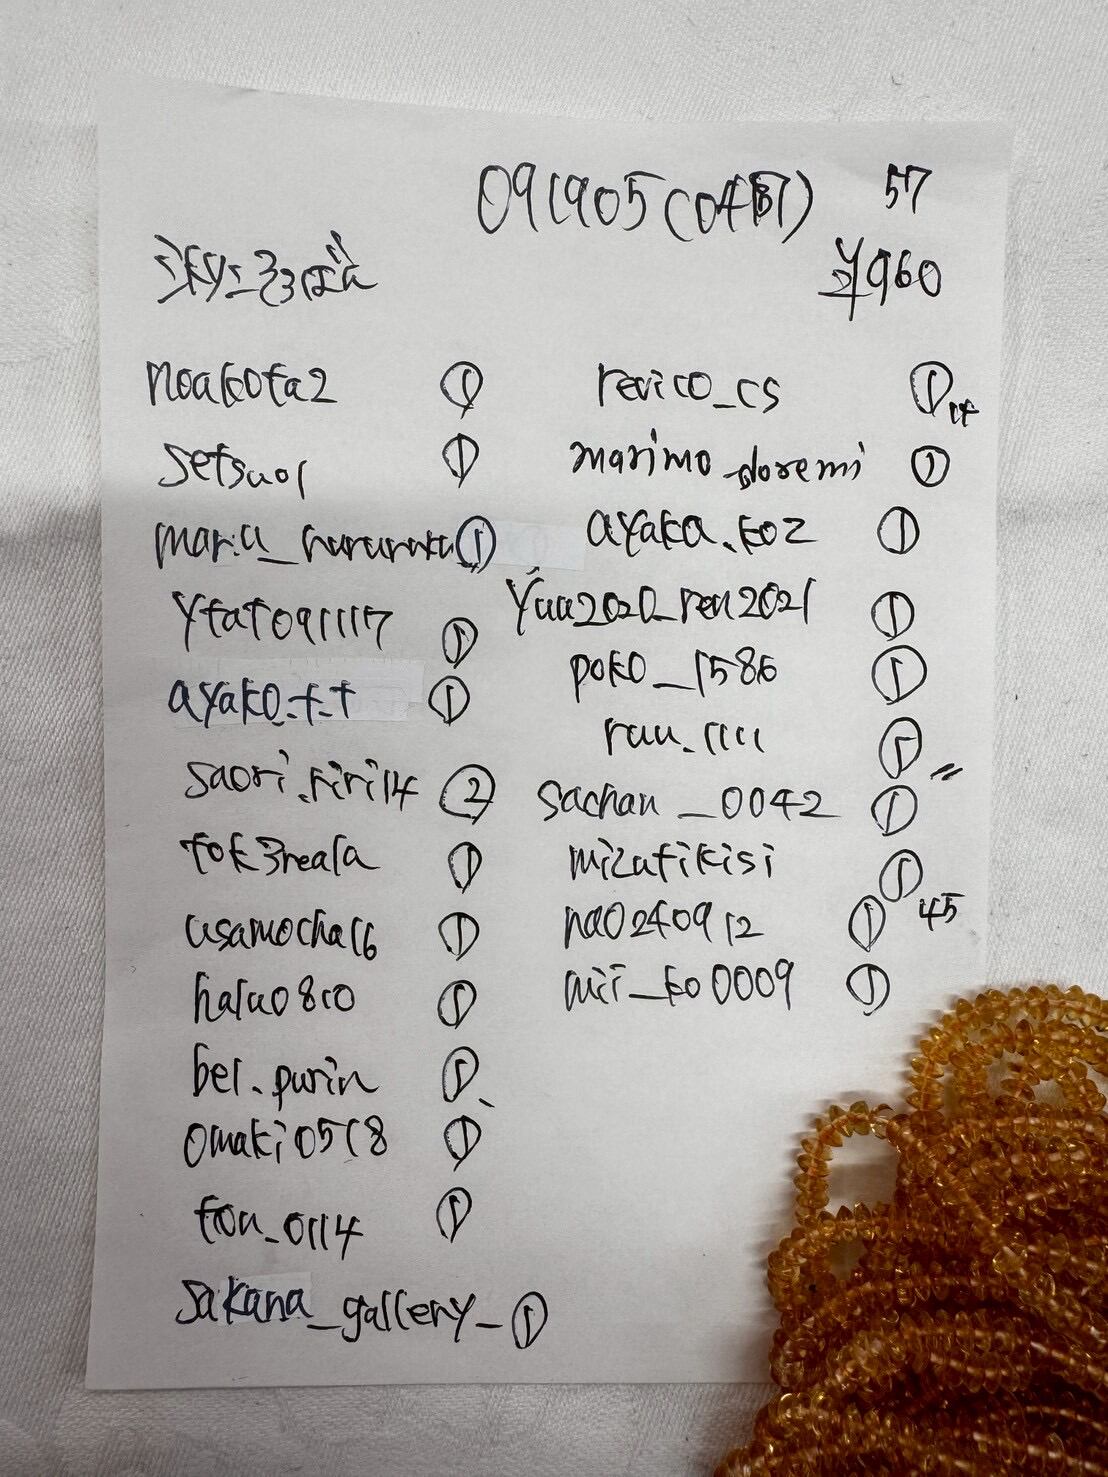 091905 57
¥960
noakota2 ①
setsu01 ①
①
ytat091117 ①
ayako.t.t ①
saori.riri14 ②
tok3reala ①
usamocha16 ①
haru0810 ①
bel.purin ①
omaki0518 ①
tou_0114 ①
sakana_gallery_ ①
revico_cs ① 14
marimo_doremi ①
ayaka.koz ①
yuu2020_ren2021 ①
poko_1586 ①
ruu.1111 ①
sachan_0042 ①
mizutikisi ①
nao240912 ① 45
mii_ko0009 ①